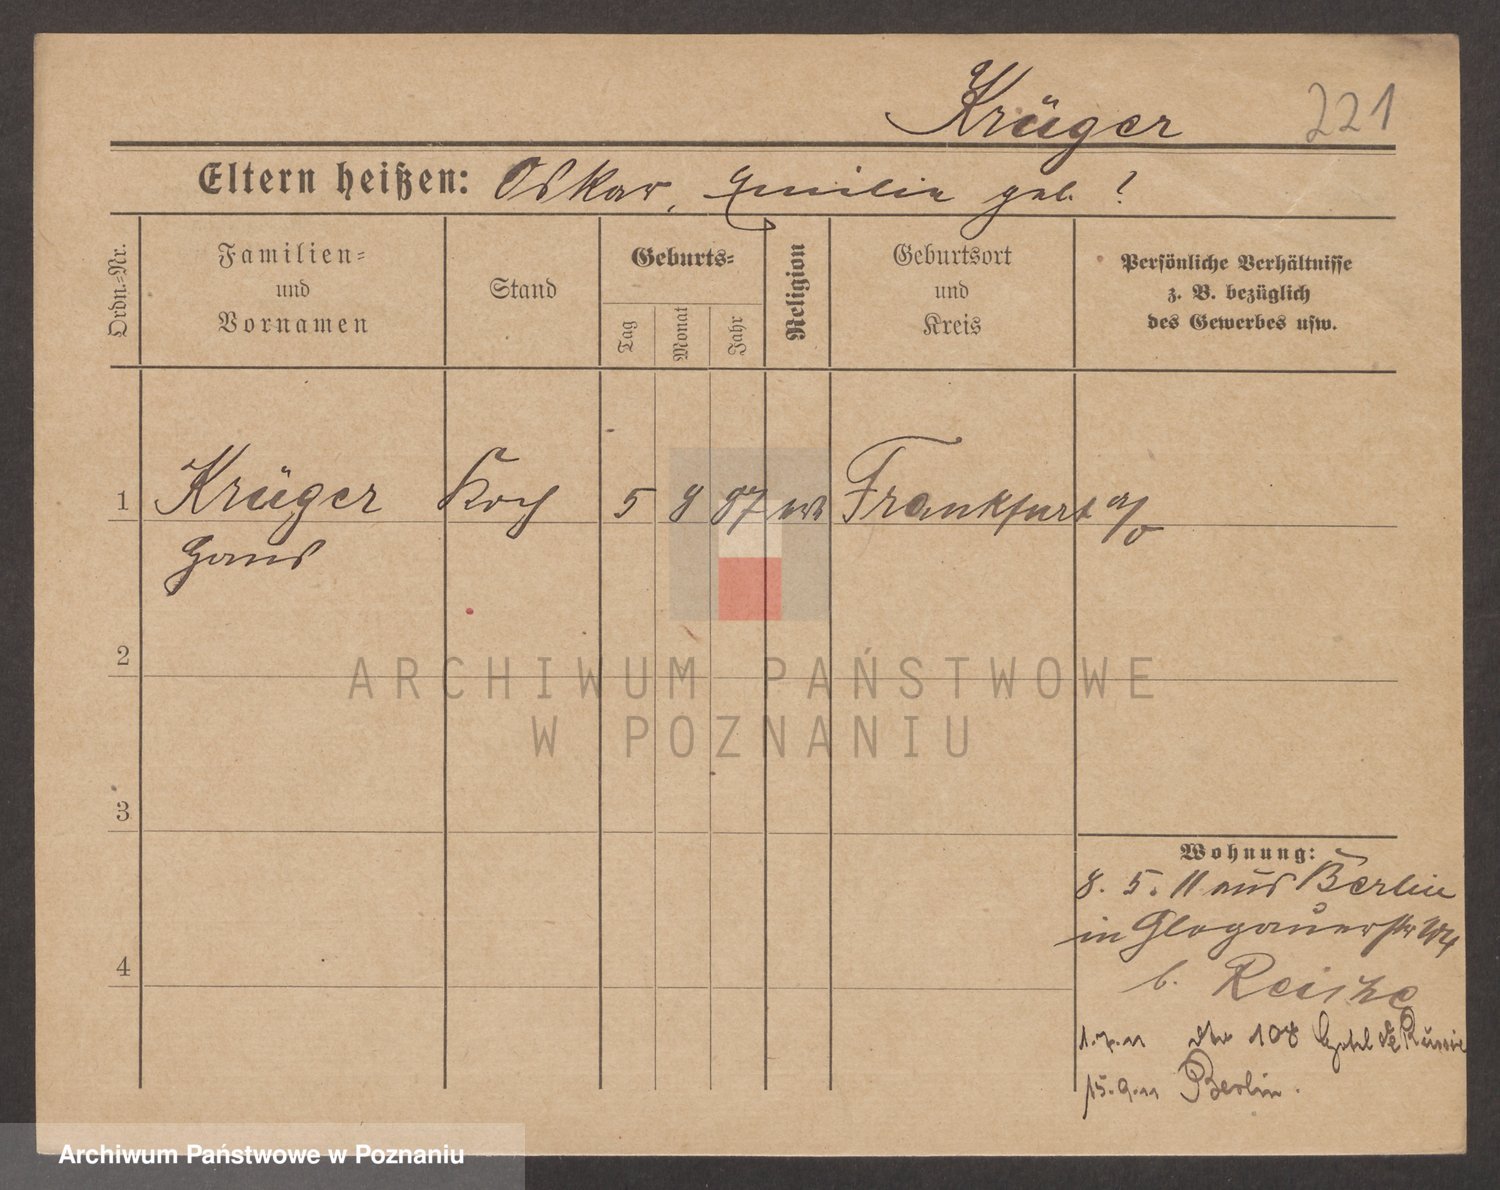 Krüger 221
Eltern heißen: Oskar, Emilie geb. ?
Ordn.-Nr.
Familien-
und
Vornamen
Stand
Geburts-
Tag
Monat
Jahr
Religion
Geburtsort
und
Kreis
Persönliche Verhältnisse
z. B. bezüglich
des Gewerbes usw.
1 Krüger Koch 5 8 87 Frankfurt a/O
Hans
2
ARCHIWUM PAŃSTWOWE
W POZNANIU
3
Wohnung:
8. 5. 11 aus Berlin
in Glogauerstr
b. Reiske
1.7.11 108 Hotel de Russie
15.9.11 Berlin.
4
Archiwum Państwowe w Poznaniu